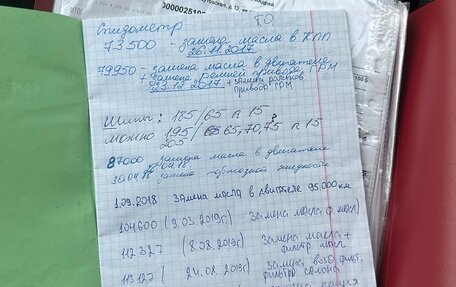 000002519
Спидометр ТО
73500 - замена масла в КПП
26.11.2017
79950 - замена масла в двигателе
+ замена ремней привода ГРМ
23.12.2017 + замена роликов
привода ГРМ
Шины: 185/65 R 15
можно 195/65,70,75 R 15
205
87000 замена масла в двигателе
30.04.18 замена тормозной жидкости
1.09.2018 Замена масла в двигателе 95.000 км
104600 (9.03.2019г) Замена масла ф. масл)
112327 (8.08.2019г) Замена масла +
фильтр. масл.
113127 ( 24.08.2019г) замена возд фильт.
фильтра салона